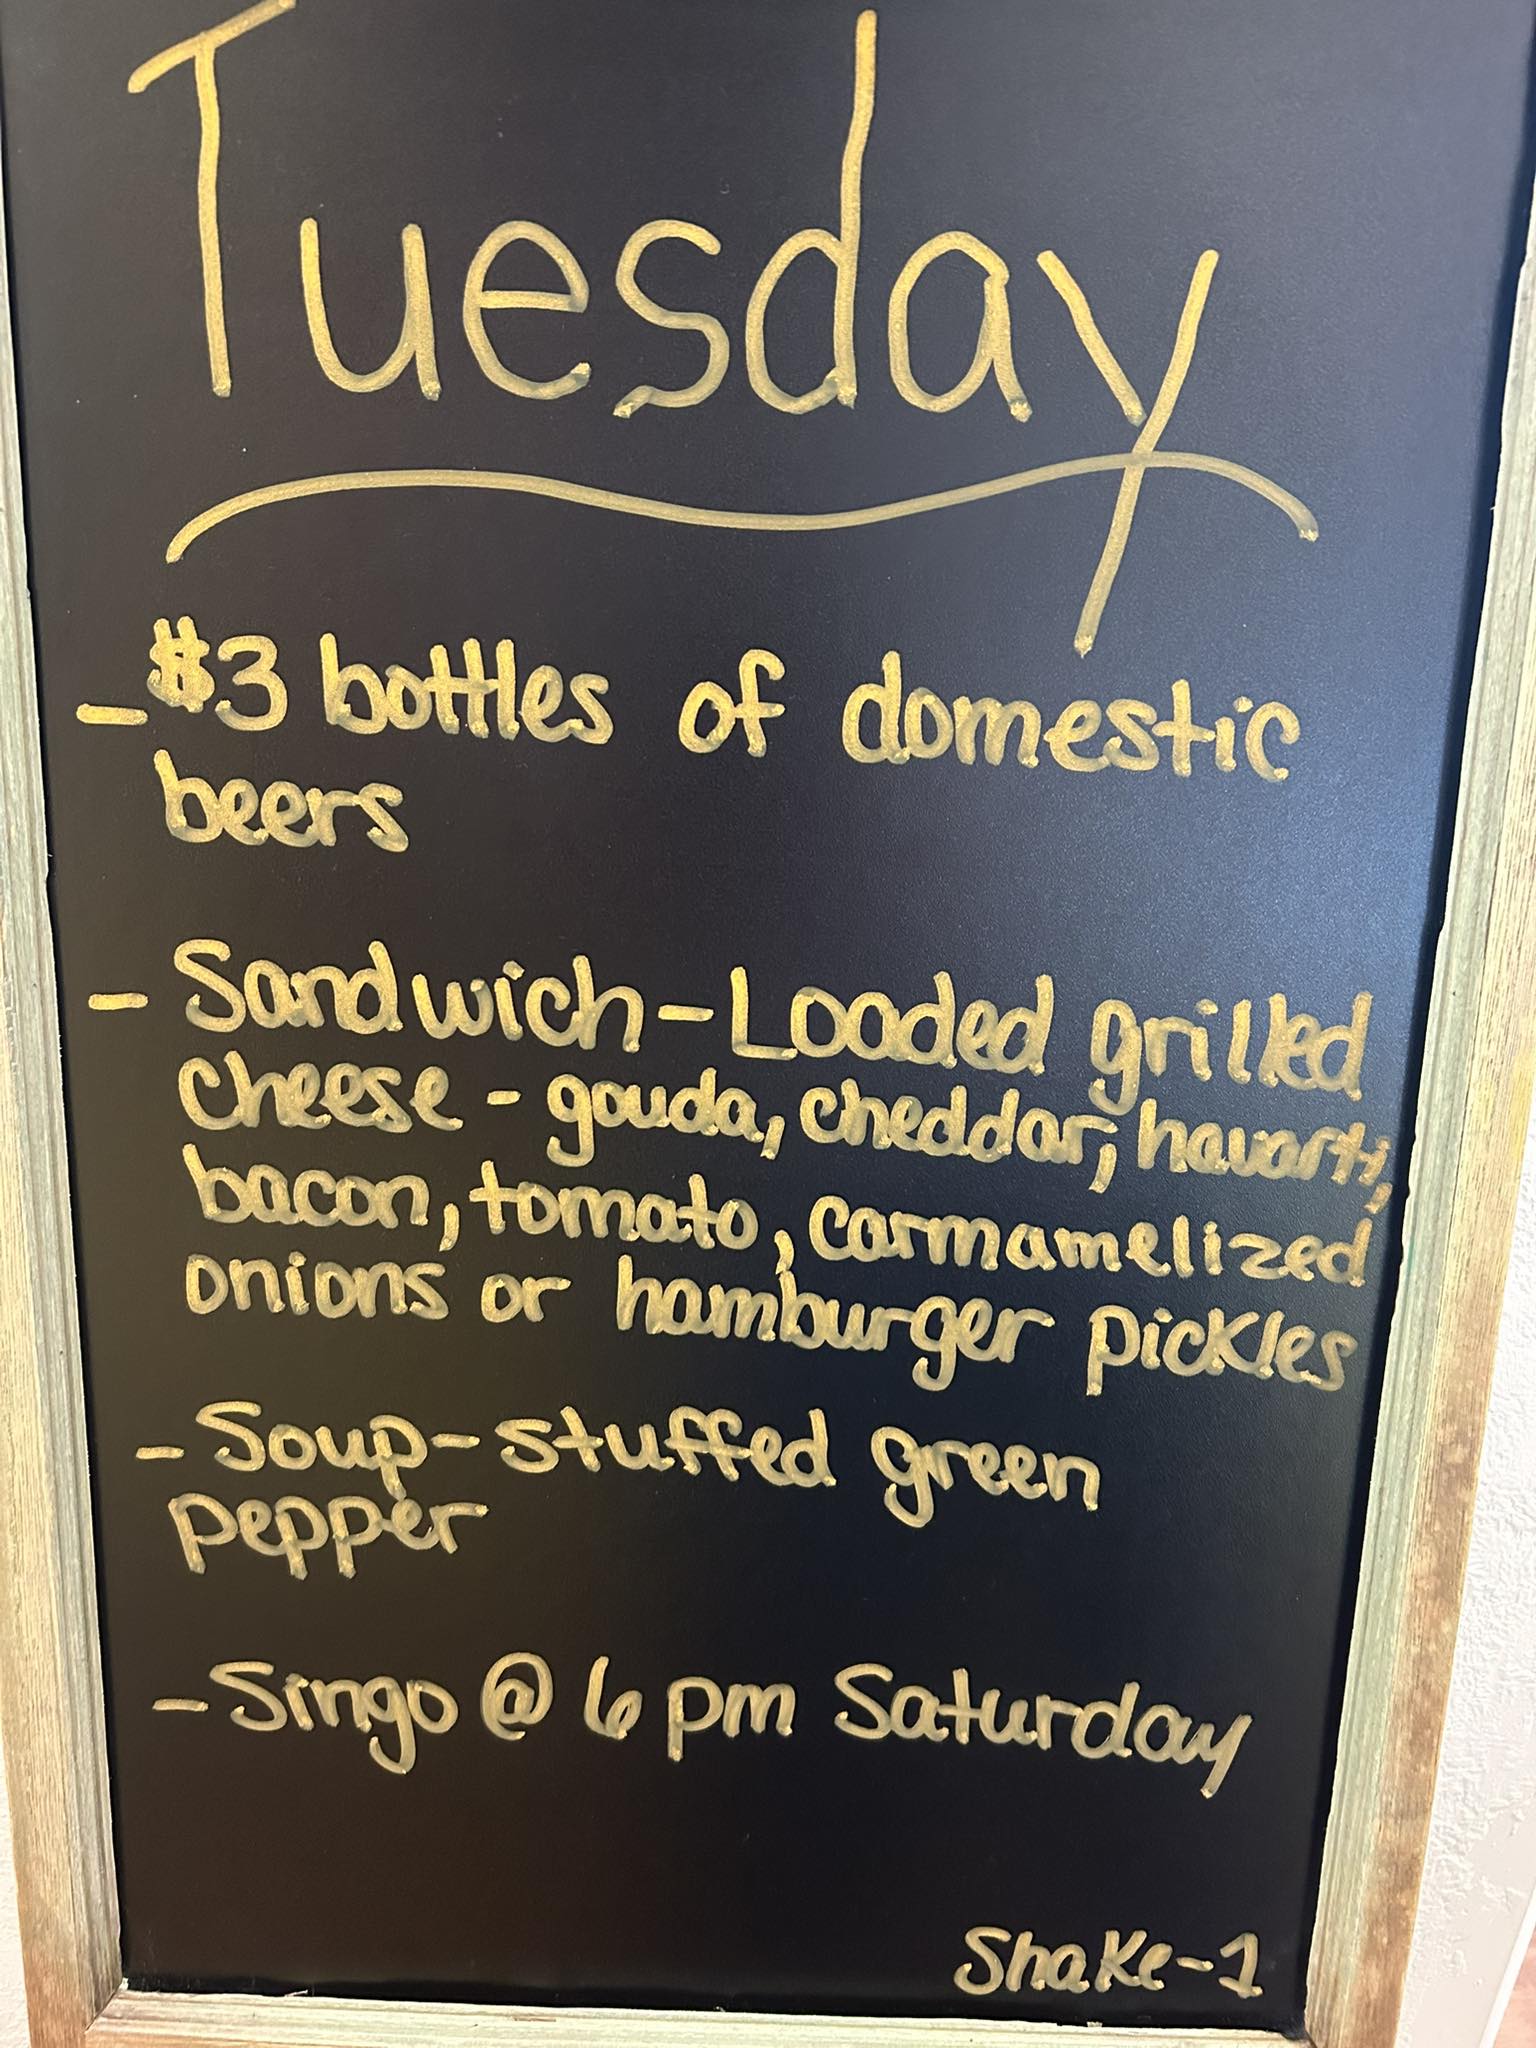 Tuesday
- $3 bottles of domestic
beers
- Sandwich - Loaded grilled
cheese - gouda, cheddar, havarti,
bacon, tomato, carmamelized
onions or hamburger pickles
- Soup - stuffed green
pepper
- Singo @ 6 pm Saturday
Shake - 1